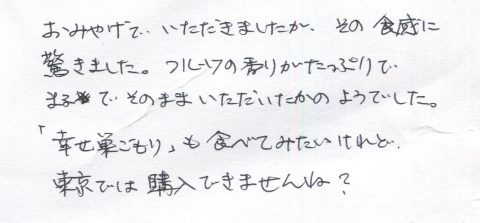 おみやげで いただきましたが、その食感に
驚きました。フルーツの香りがたっぷりで
まるで そのまま いただいたかの ようでした。
「幸せ巣ごもり」も 食べてみたいけれど、
東京では 購入できませんね?